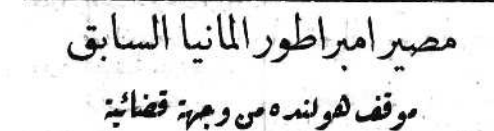 مصير امبراطور المانيا السابق
موقف هولنده من وجهة قضائية